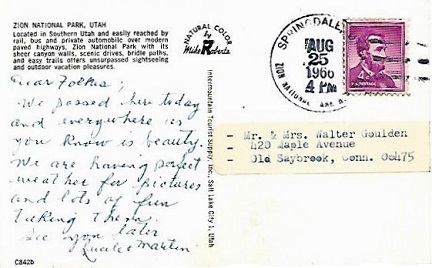 ZION NATIONAL PARK, UTAH
Located in Southern Utah and easily reached by
rail, bus and private automobile over modern
paved highways, Zion National Park with its
sheer canyon walls, scenic drives, bridle paths,
and easy trails offers unsurpassed sightseeing
and outdoor vacation pleasures.
NATURAL COLOR
by
Mike Roberts
SPRINGDALE
AUG
25
1966
4 PM
ZION NATIONAL
4¢
Dear Folkes;
We passed here today
and everywhere as
you know is beauty.
We are having perfect
weather for pictures
and lots of fun
taking them.
See you later
Lucile Martin
Intermountain Tourist Supply, Inc., Salt Lake City 1, Utah
Mr. & Mrs. Walter Goulden
420 Maple Avenue
Old Saybrook, Conn. 06475
C842b